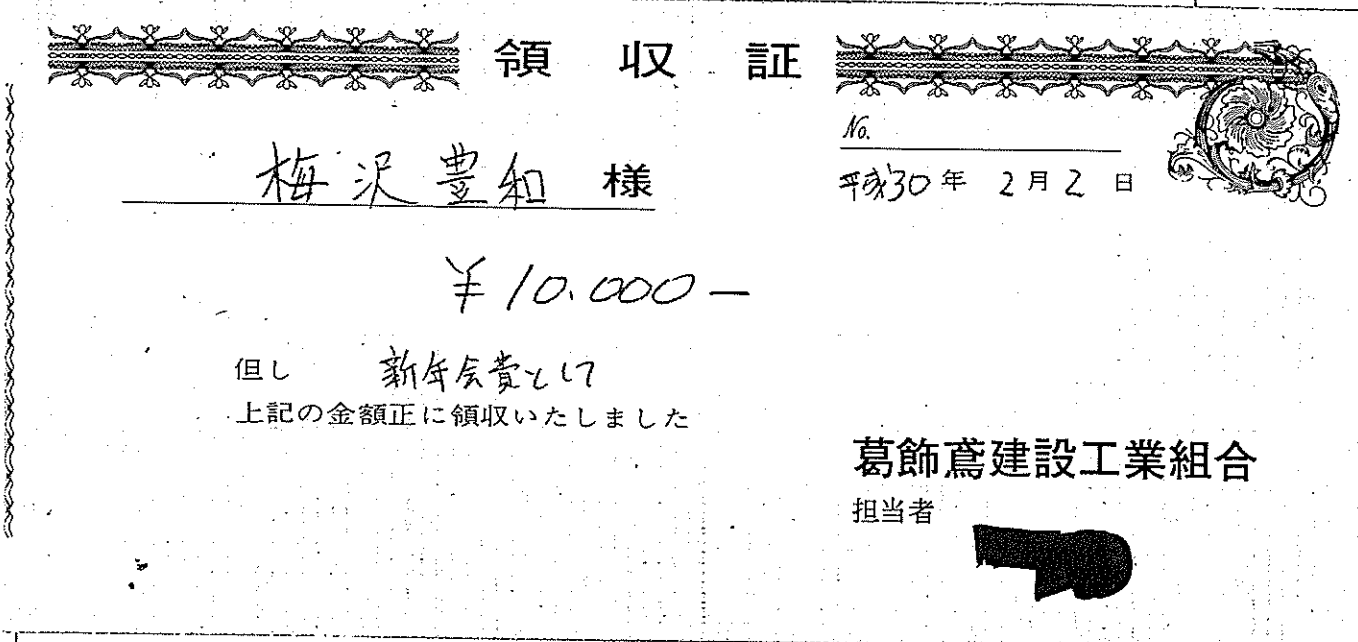 領収証
No.
梅沢豊和 様
平成30年 2月2日
¥10.000-
但し 新年会費として
上記の金額正に領収いたしました
葛飾鳶建設工業組合
担当者